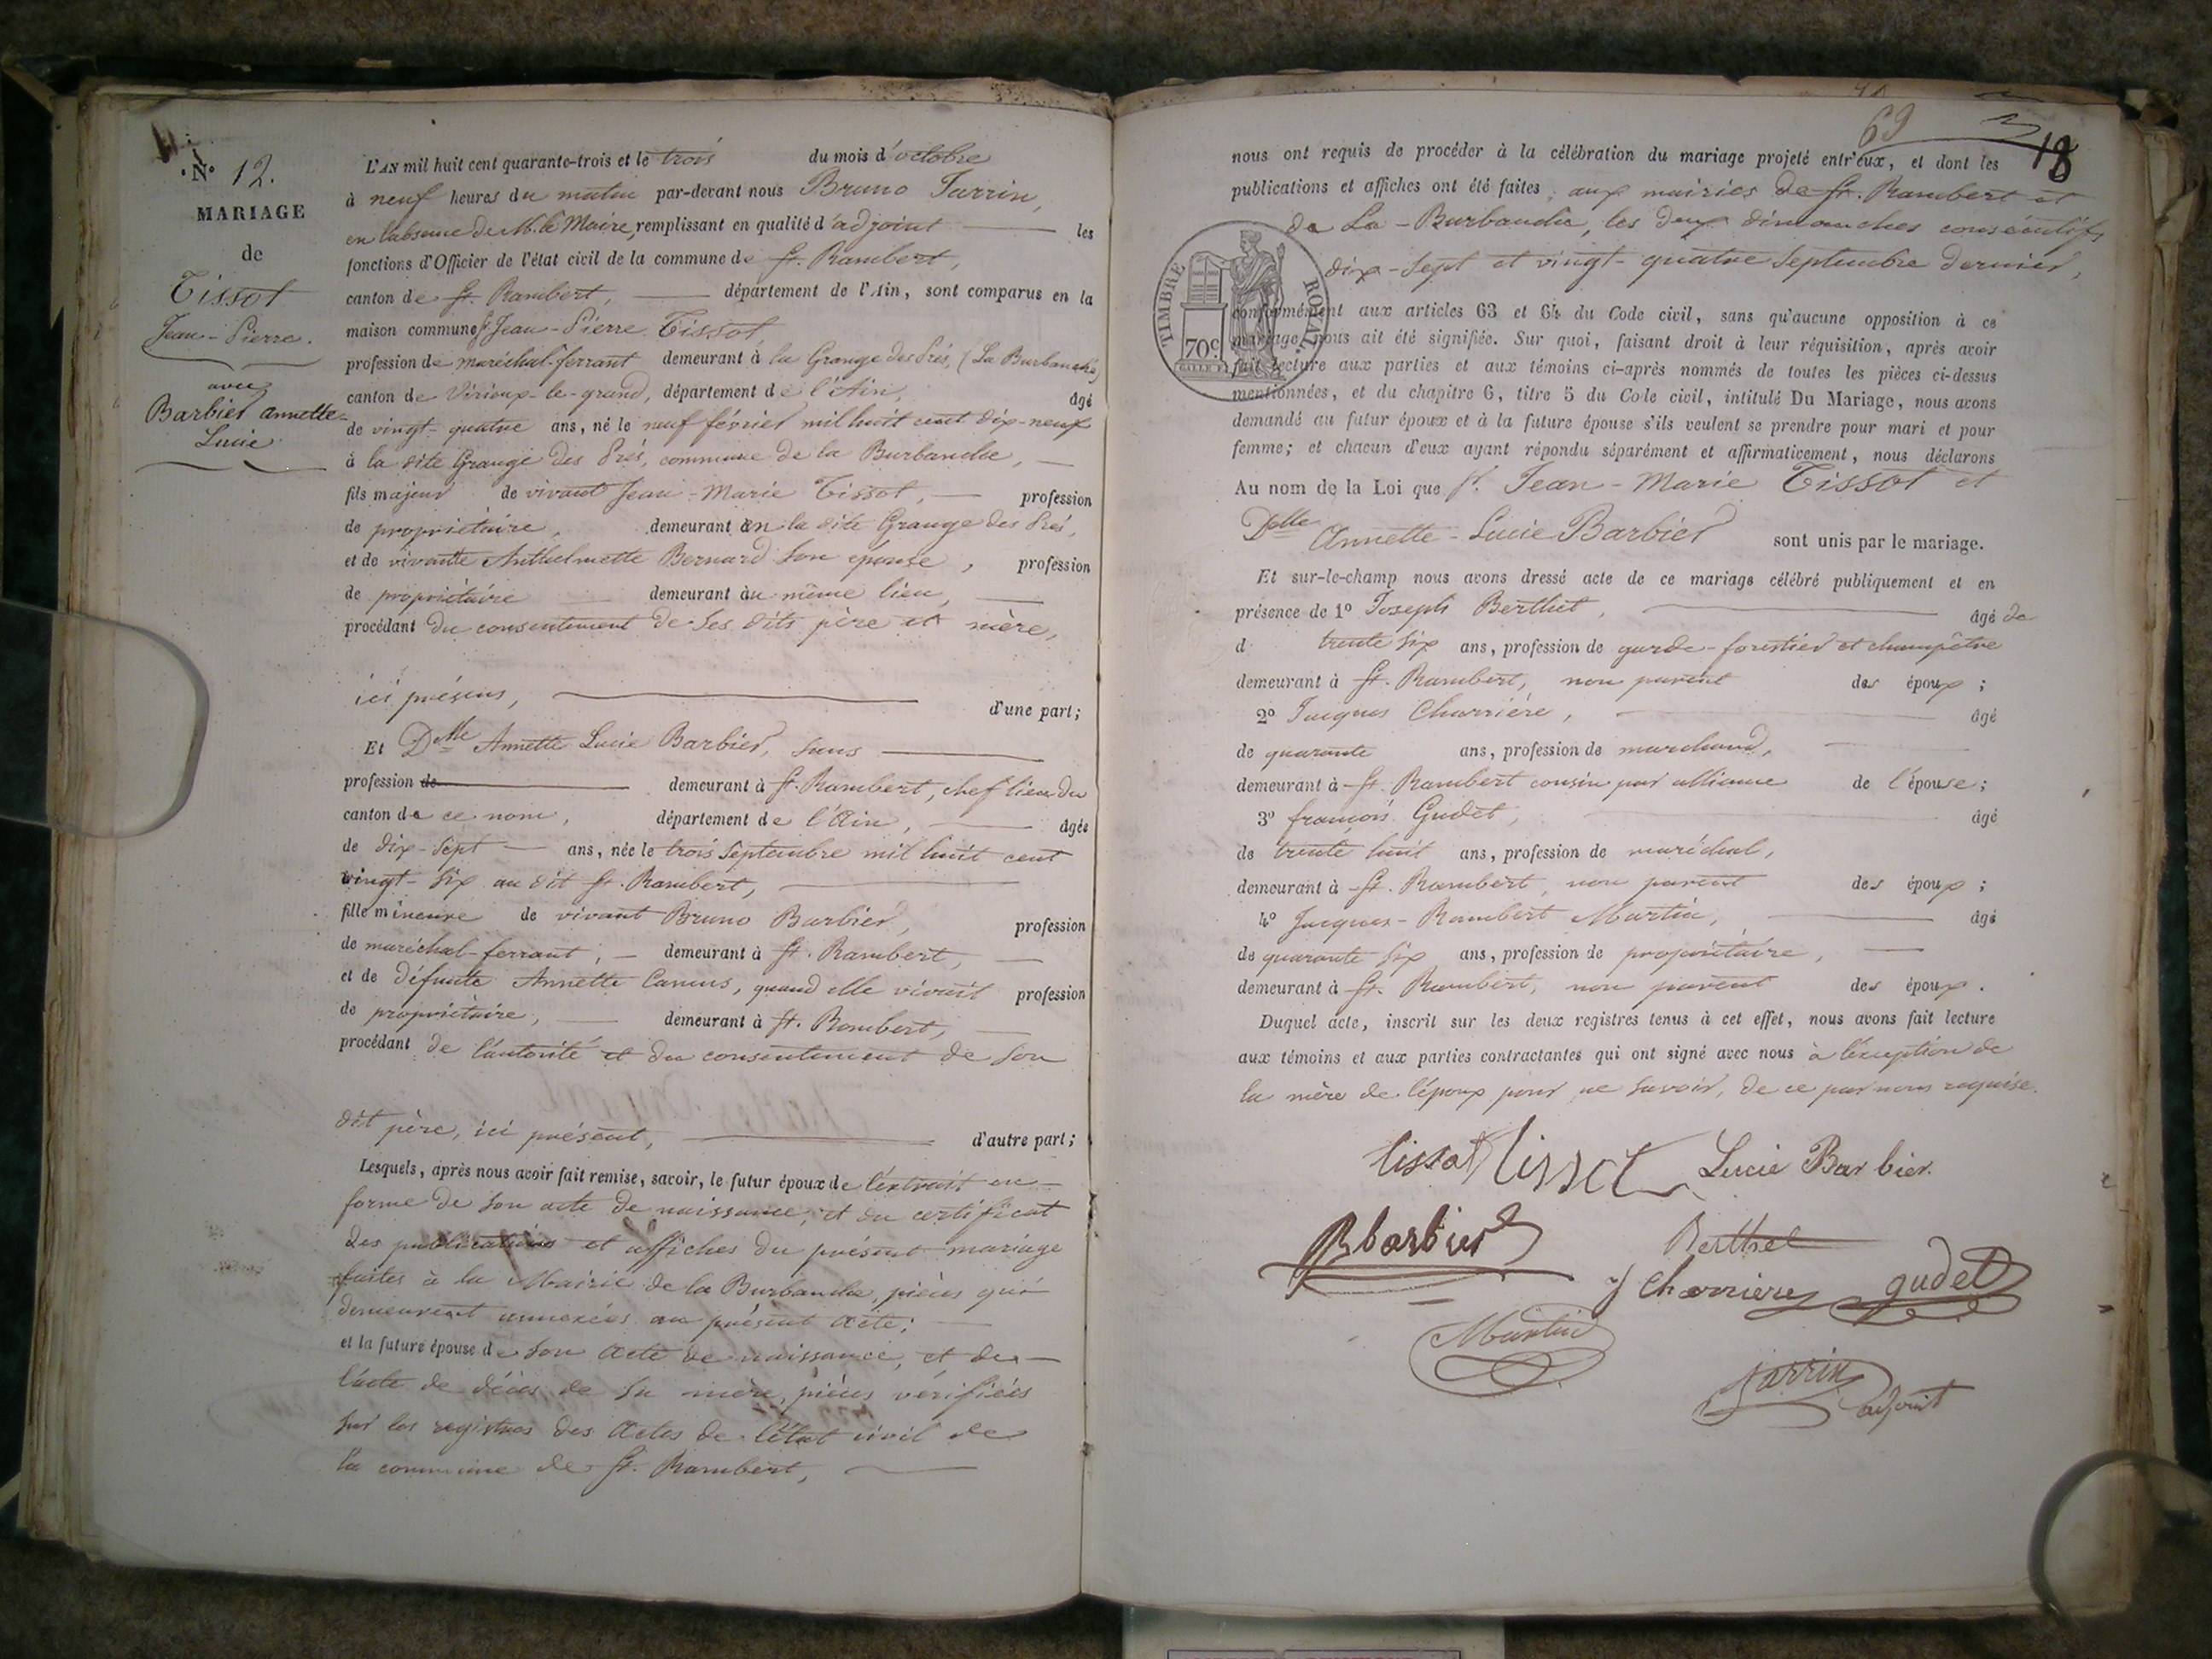 N° 12.
MARIAGE
de
Tissot
Jean-Pierre.
avec
Barbier annette
Lucie
L'AN mil huit cent quarante-trois et le trois du mois d'octobre
à neuf heures du matin par-devant nous Bruno Jarrin,
en l'absence de M. le Maire, remplissant en qualité d'adjoint les
fonctions d'Officier de l'état civil de la commune de St. Rambert,
canton de St. Rambert, département de l'Ain, sont comparus en la
maison commune Sr Jean-Pierre Tissot
profession de maréchal-ferrant demeurant à la Grange des Prés, (La Burbanche)
canton de Virieux-le-grand, département de l'Ain, âgé
de vingt-quatre ans, né le neuf février mil huit cent dix-neuf
à la dite Grange des Prés, commune de la Burbanche,
fils majeur de vivant Jean-Marie Tissot, profession
de propriétaire, demeurant en la dite Grange des Prés,
et de vivante Anthelmette Bernard son épouse, profession
de propriétaire demeurant au même lieu,
procédant du consentement de ses dits père et mère,
ici présens, d'une part;
Et Dlle Annette Lucie Barbier, sans
profession de demeurant à St. Rambert, chef lieu du
canton de ce nom, département de l'Ain, âgée
de dix-sept ans, née le trois Septembre mil huit cent
vingt-six au dit St. Rambert,
fille mineure de vivant Bruno Barbier, profession
de maréchal-ferrant, demeurant à St. Rambert,
et de défunte Annette Camus, quand elle vivait profession
de propriétaire, demeurant à St. Rambert,
procédant de l'autorité et du consentement de son
dit père, ici présent, d'autre part;
Lesquels, après nous avoir fait remise, savoir, le futur époux de l'extrait en
forme de son acte de naissance, et du certificat
des publications et affiches du présent mariage
faites à la Mairie de la Burbanche, pièces qui
demeurent annexées au présent acte;
et la future épouse de son acte de naissance, et de
l'acte de décès de sa mère, pièces vérifiées
sur les registres des Actes de l'état civil de
la commune de St. Rambert,
69
18
nous ont requis de procéder à la célébration du mariage projeté entr'eux, et dont les
publications et affiches ont été faites aux mairies de St. Rambert et
de La-Burbanche, les deux dimanches consécutifs
dix-sept et vingt-quatre Septembre dernier,
TIMBRE ROYAL.
70c.
conformément aux articles 63 et 64 du Code civil, sans qu'aucune opposition à ce
mariage nous ait été signifiée. Sur quoi, faisant droit à leur réquisition, après avoir
fait lecture aux parties et aux témoins ci-après nommés de toutes les pièces ci-dessus
mentionnées, et du chapitre 6, titre 5 du Code civil, intitulé Du Mariage, nous avons
demandé au futur époux et à la future épouse s'ils veulent se prendre pour mari et pour
femme; et chacun d'eux ayant répondu séparément et affirmativement, nous déclarons
Au nom de la Loi que Sr. Jean-Marie Tissot et
Dlle Annette-Lucie Barbier sont unis par le mariage.
Et sur-le-champ nous avons dressé acte de ce mariage célébré publiquement et en
présence de 1° Joseph Berthet, âgé de
d trente six ans, profession de garde-forestier et champêtre
demeurant à St. Rambert, non parent des époux;
2° Jacques Charrière, âgé
de quarante ans, profession de marchand,
demeurant à St. Rambert cousin par alliance de l'épouse;
3° françois Gudet, âgé
de trente huit ans, profession de maréchal,
demeurant à St. Rambert, non parent des époux;
4° Jacques-Rambert Martin, âgé
de quarante six ans, profession de propriétaire,
demeurant à St. Rambert, non parent des époux.
Duquel acte, inscrit sur les deux registres tenus à cet effet, nous avons fait lecture
aux témoins et aux parties contractantes qui ont signé avec nous à l'exception de
la mère de l'époux pour ne savoir, de ce par nous requise.
tissot tissot Lucie Barbier.
B barbier Berthet
J Charriere gudet
Martin
Jarrin
adjoint